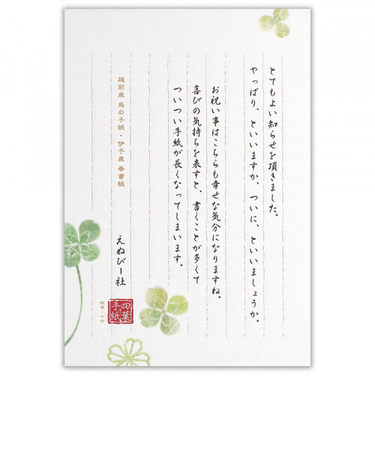 とてもよい知らせを頂きました。
やっぱり、といいますか、ついに、といいましょうか。
お祝い事はこちらも幸せな気分になりますね。
喜びの気持ちを表すと、書くことが多くて
ついつい手紙が長くなってしまいます。
越前産 鳥の子紙・伊予産 奉書紙
えぬびー社
四葉
手紙